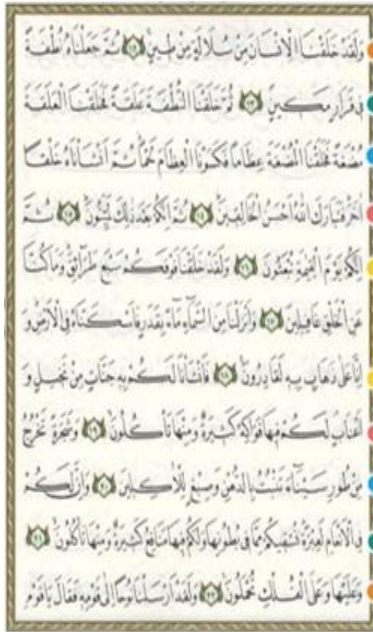 وَلَقَدْ خَلَقْنَا الْاِنْسَانَ مِنْ سُلَالَةٍ مِنْ طِينٍ ﴿١٢﴾ ثُمَّ جَعَلْنَاهُ نُطْفَةً
فِى قَرَارٍ مَكِينٍ ﴿١٣﴾ ثُمَّ خَلَقْنَا النُّطْفَةَ عَلَقَةً فَخَلَقْنَا الْعَلَقَةَ
مُضْغَةً فَخَلَقْنَا الْمُضْغَةَ عِظَامًا فَكَسَوْنَا الْعِظَامَ لَحْمًا ثُمَّ اَنْشَاْنَاهُ خَلْقًا
اٰخَرَ فَتَبَارَكَ اللّٰهُ اَحْسَنُ الْخَالِقِينَ ﴿١٤﴾ ثُمَّ اِنَّكُمْ بَعْدَ ذٰلِكَ لَمَيِّتُونَ ﴿١٥﴾ ثُمَّ
اِنَّكُمْ يَوْمَ الْقِيٰمَةِ تُبْعَثُونَ ﴿١٦﴾ وَلَقَدْ خَلَقْنَا فَوْقَكُمْ سَبْعَ طَرَائِقَ وَمَا كُنَّا
عَنِ الْخَلْقِ غَافِلِينَ ﴿١٧﴾ وَاَنْزَلْنَا مِنَ السَّمَاءِ مَاءً بِقَدَرٍ فَاَسْكَنَّاهُ فِى الْاَرْضِ وَ
اِنَّا عَلٰى ذَهَابٍ بِهِ لَقَادِرُونَ ﴿١٨﴾ فَاَنْشَاْنَا لَكُمْ بِهِ جَنَّاتٍ مِنْ نَخِيلٍ وَ
اَعْنَابٍ لَكُمْ فِيهَا فَوَاكِهُ كَثِيرَةٌ وَمِنْهَا تَاْكُلُونَ ﴿١٩﴾ وَشَجَرَةً تَخْرُجُ
مِنْ طُورِ سَيْنَاءَ تَنْبُتُ بِالدُّهْنِ وَصِبْغٍ لِلْاٰكِلِينَ ﴿٢٠﴾ وَاِنَّ لَكُمْ
فِى الْاَنْعَامِ لَعِبْرَةً نُسْقِيكُمْ مِمَّا فِى بُطُونِهَا وَلَكُمْ فِيهَا مَنَافِعُ كَثِيرَةٌ وَمِنْهَا تَاْكُلُونَ ﴿٢١﴾
وَعَلَيْهَا وَعَلَى الْفُلْكِ تُحْمَلُونَ ﴿٢٢﴾ وَلَقَدْ اَرْسَلْنَا نُوحًا اِلٰى قَوْمِهِ فَقَالَ يَا قَوْمِ